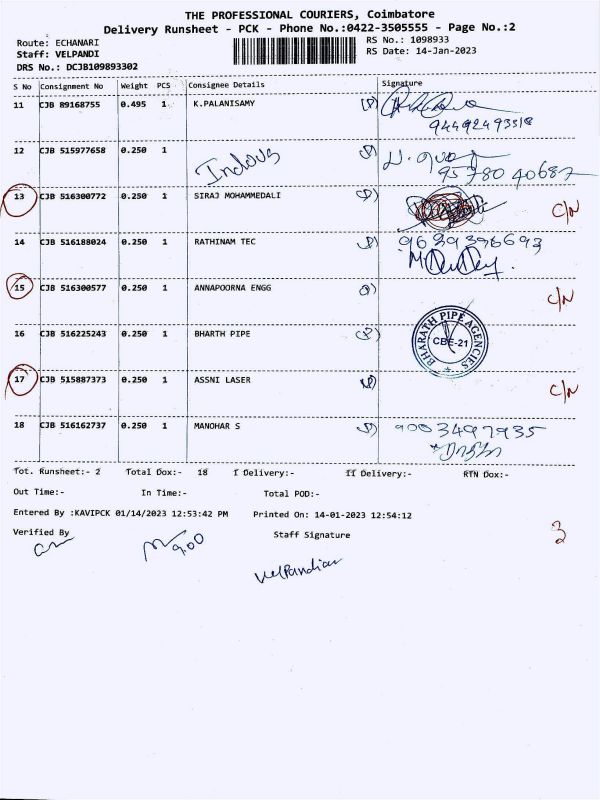 THE PROFESSIONAL COURIERS, Coimbatore
Delivery Runsheet - PCK - Phone No.:0422-3505555 - Page No.:2
Route: ECHANARI
RS No.: 1098933
Staff: VELPANDI
RS Date: 14-Jan-2023
DRS No.: DCJB109893302
S No Consignment No Weight PCS Consignee Details Signature
11 CJB 89168755 0.495 1 K.PALANISAMY
94492493318
12 CJB 515977658 0.250 1
Indous
95780 40687
13 CJB 516300772 0.250 1 SIRAJ MOHAMMEDALI C/N
14 CJB 516188024 0.250 1 RATHINAM TEC 9639396693
15 CJB 516300577 0.250 1 ANNAPOORNA ENGG C/N
16 CJB 516225243 0.250 1 BHARTH PIPE
BHARATH PIPE AGENCIES
CBE-21
17 CJB 515887373 0.250 1 ASSNI LASER C/N
18 CJB 516162737 0.250 1 MANOHAR S 9003497935
Tot. Runsheet:- 2 Total Dox:- 18 I Delivery:- II Delivery:- RTN Dox:-
Out Time:- In Time:- Total POD:-
Entered By :KAVIPCK 01/14/2023 12:53:42 PM Printed On: 14-01-2023 12:54:12
Verified By Staff Signature 3
9.00
VelPandian